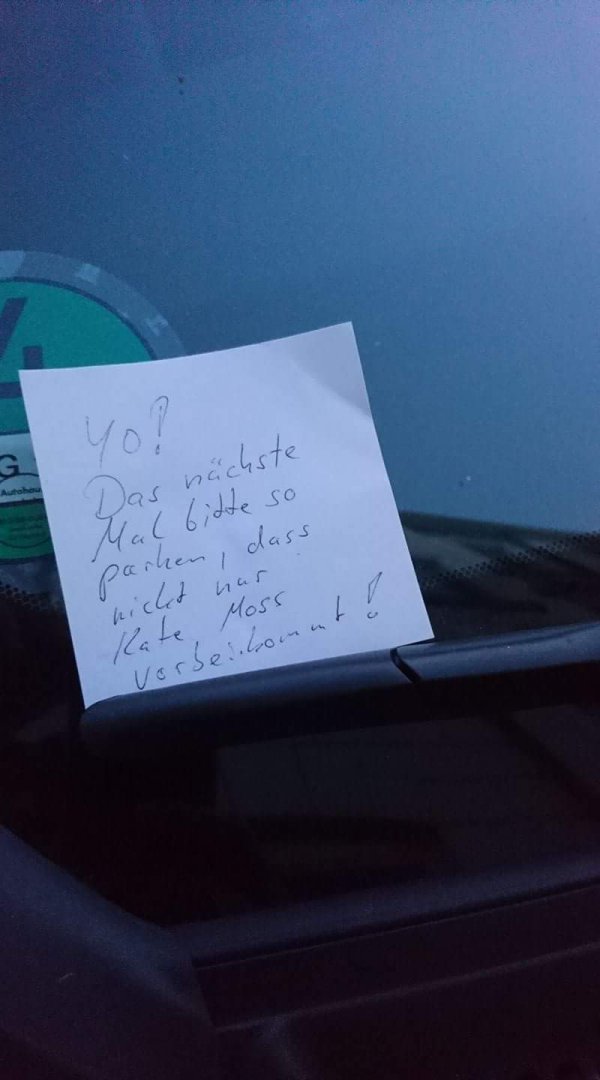 4
G
Autohau
Yo!
Das nächste
Mal bitte so
parken, dass
nicht nur
Kate Moss
vorbeikommt!